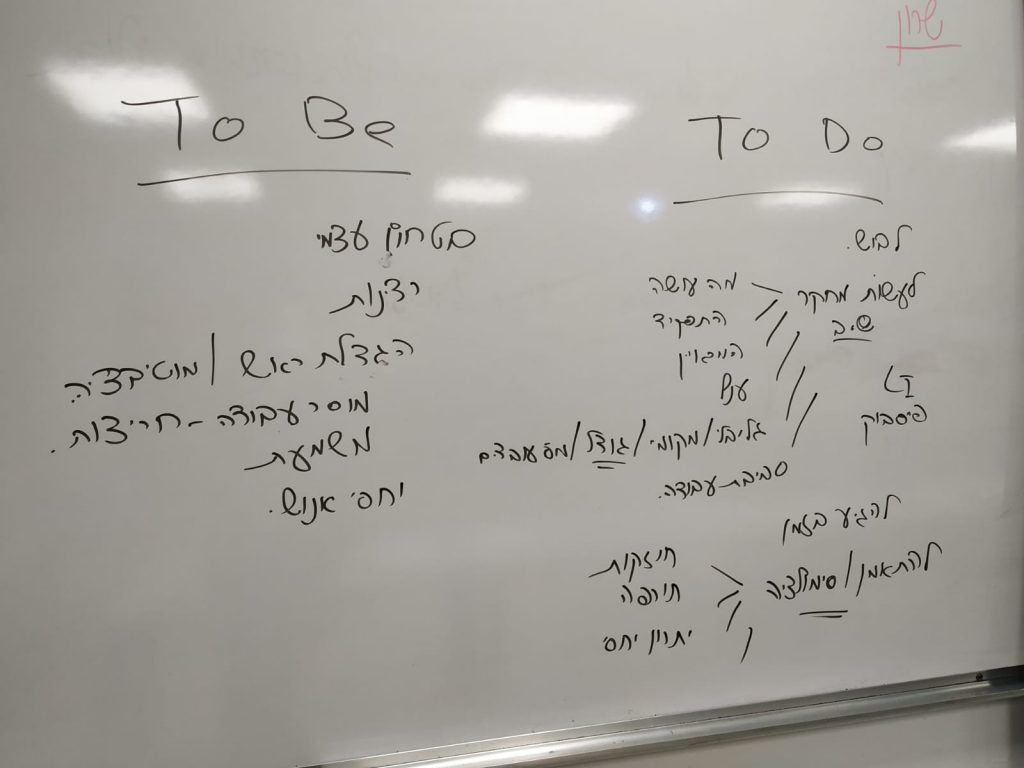 שרון
To Be
בטחון עצמי
רצינות
הגדלת ראש / מוטיבציה.
מוסר עבודה - חריצות.
משמעת
יחסי אנוש.
To Do
לבוש.
לעשות מחקר
שיב
מה עושה
התפקיד
המראיין
ענף
גלובלי / מקומי / גודל / מס עובדים
סביבת עבודה.
פייסבוק
להגיע בזמן
להתאמן / סימולציה
חוזקות
תורפה
יתרון יחסי